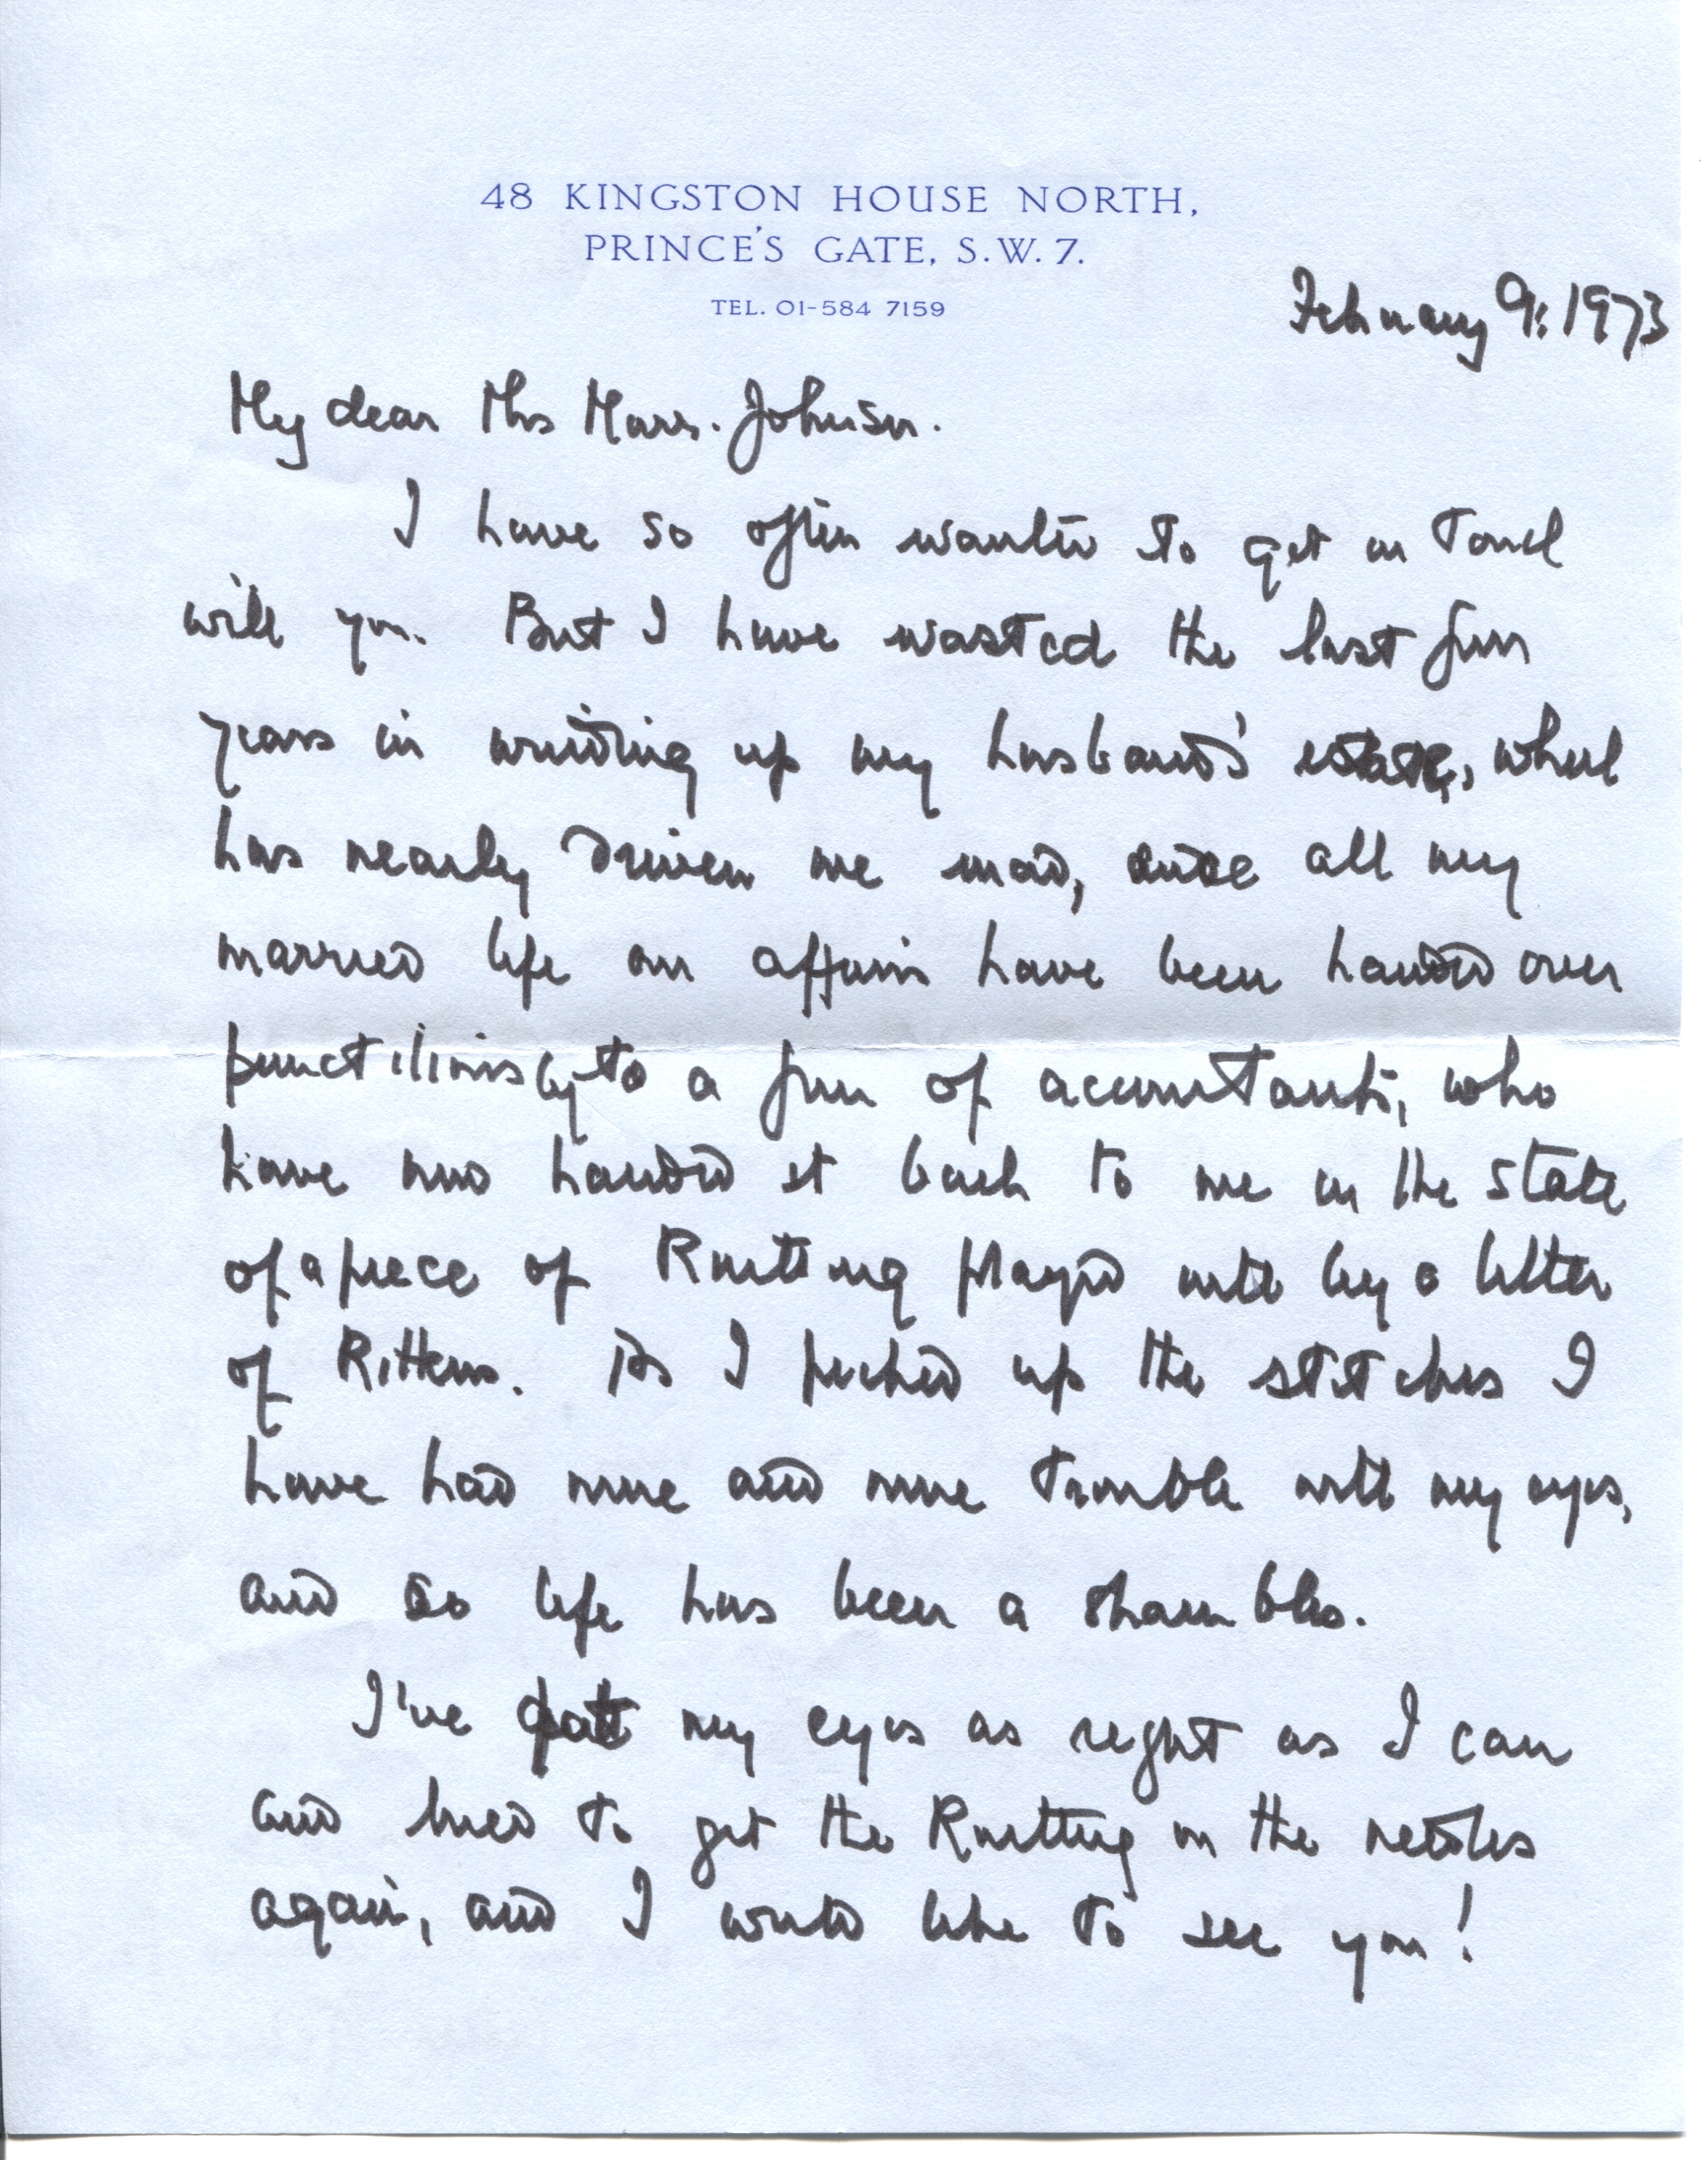 48 KINGSTON HOUSE NORTH,
PRINCE'S GATE, S.W. 7.
TEL. 01-584 7159
February 9: 1973
My dear Mrs Johnson.
I have so often wanted to get in touch
with you. But I have wasted the last four
years in winding up my husband's estate, which
has nearly driven me mad, since all my
married life our affairs have been handed over
punctiliously to a firm of accountants, who
have now handed it back to me in the state
of a piece of Knitting played with by a litter
of Kittens. As I picked up the stitches I
have had more and more trouble with my eyes,
and so life has been a shambles.
I've got my eyes as right as I can
and tried to get the Knitting on the needles
again, and I would like to see you!